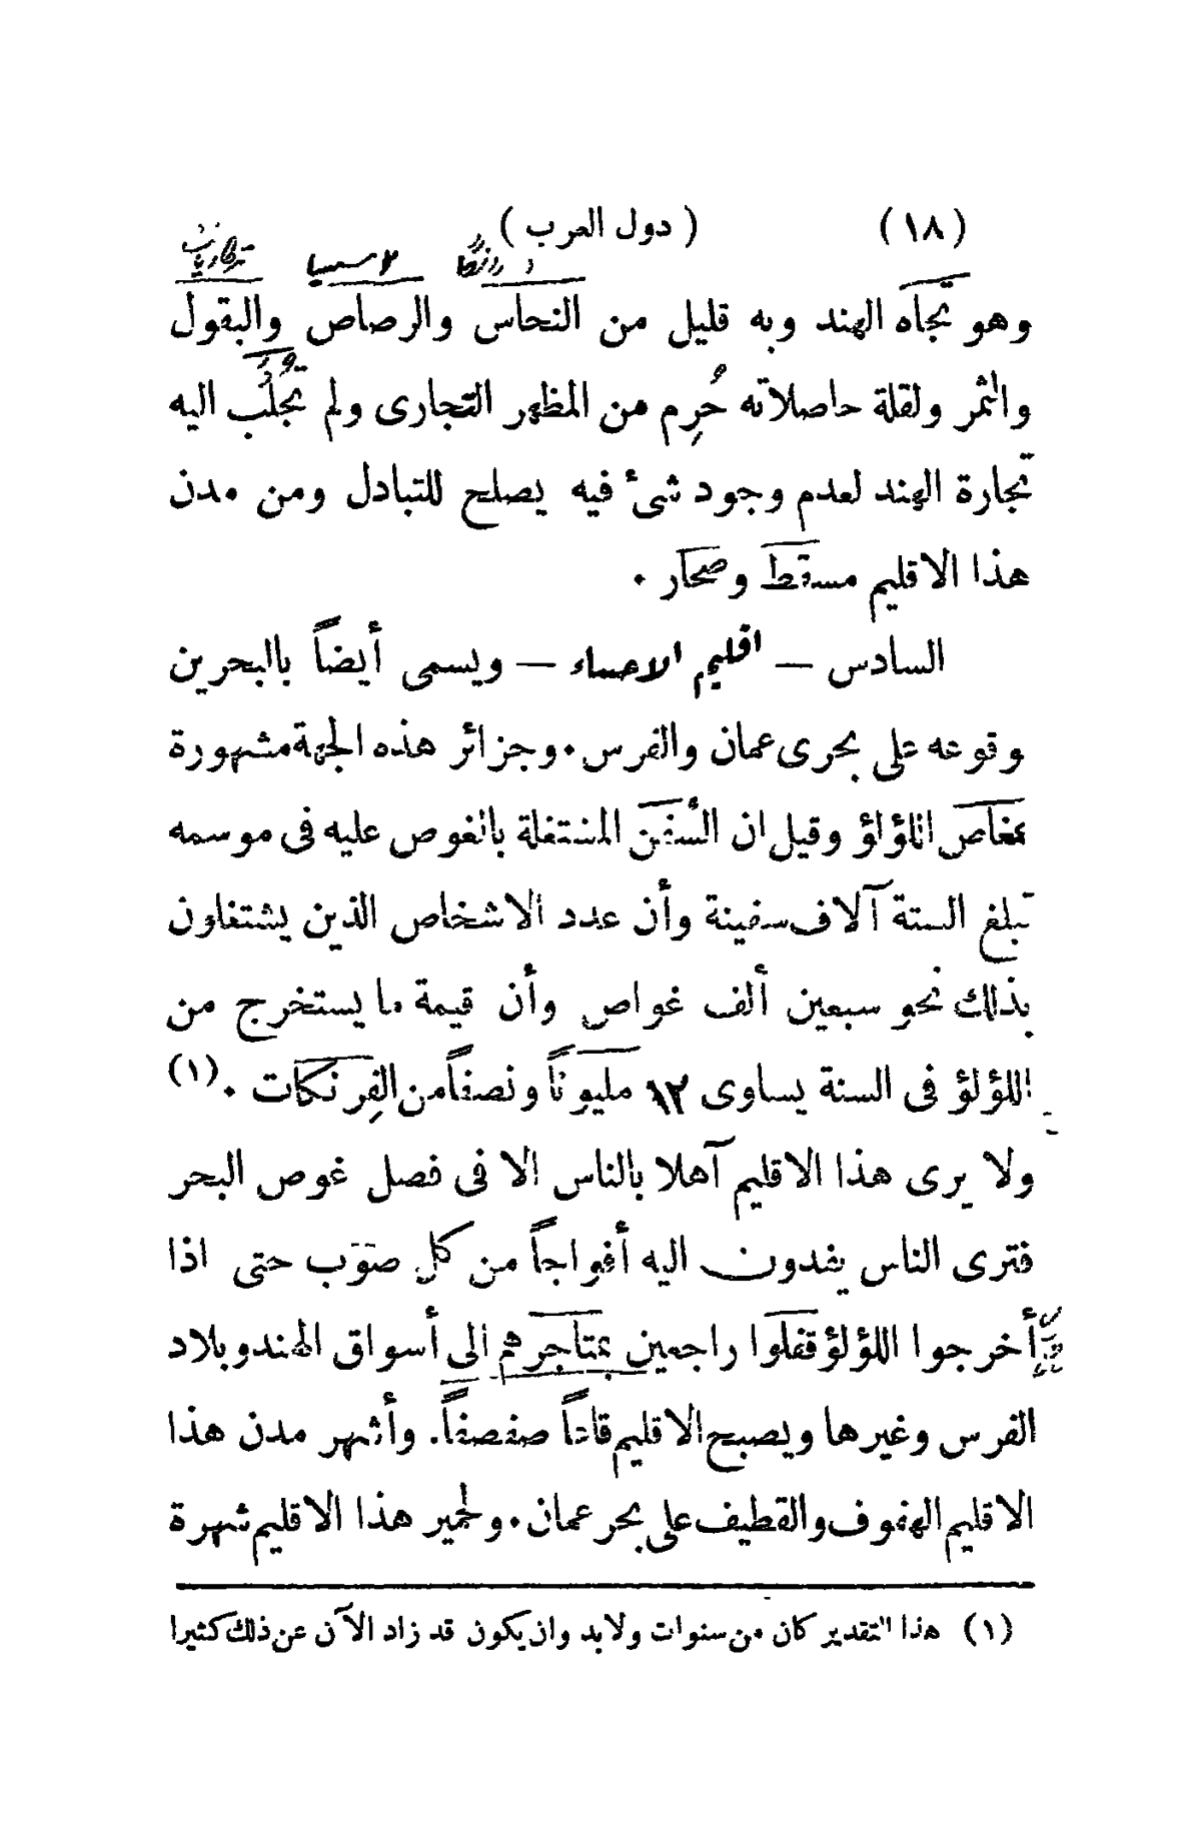 (١٨) ( دول العرب )
وهو تجاه الهند وبه قليل من النحاس والرصاص والبقول
والثمر ولقلة حاصلاته حُرِم من المظهر التجارى ولم تُجلَب اليه
تجارة الهند لعدم وجود شىء فيه يصلح للتبادل ومن مدن
هذا الاقليم مسقط وصحار .
السادس — اقليم الاحساء — ويسمى أيضاً بالبحرين
وقوعه على بحرى عمان والفرس . وجزائر هذه الجهة مشهورة
بمغاص اللؤلؤ وقيل ان السُفن المشتغلة بالغوص عليه فى موسمه
تبلغ الستة آلاف سفينة وأن عدد الاشخاص الذين يشتغلون
بذلك نحو سبعين ألف غواص وأن قيمة ما يستخرج من
اللؤلؤ فى السنة يساوى ١٢ مليوناً ونصفاً من الفِرنكات . (١)
ولا يرى هذا الاقليم آهلا بالناس الا فى فصل غوص البحر
فترى الناس يفدون اليه أفواجاً من كل صَوَب حتى اذا
أخرجوا اللؤلؤ قفلوا راجعين بمتاجرهم الى أسواق الهند وبلاد
الفرس وغيرها ويصبح الاقليم قاعاً صفصفاً . وأشهر مدن هذا
الاقليم الهفوف والقطيف على بحر عمان . ولحمير هذا الاقليم شهرة
(١) هذا التقدير كان من سنوات ولابد وان يكون قد زاد الآن عن ذلك كثيرا